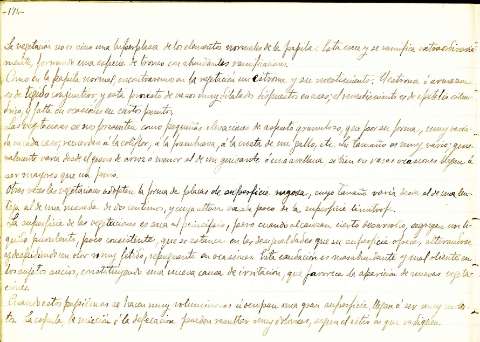 -171-
La vegetación no es sino una hiperplasia de los elementos normales de la papila. Esta crece y se ramifica extraordinaria-
mente, formando una especie de tronco con abundantes ramificaciones.
Como en la papila normal encontraremos en la vegetación un estroma y un revestimiento. El estroma ó armazón
es de tejido conjuntivo, y está provisto de vasos muy dilatados dispuestos en asas; el revestimiento es de epitelio
y falta en ocasiones en ciertos puntos.
Las vegetaciones se nos presentan como pequeñas elevaciones de aspecto granuloso, que por su forma, muy varia-
da en cada caso, recuerdan á la coliflor, á la frambuesa, á la cresta de un gallo, etc. Su tamaño es muy vario; gene-
ralmente varía desde el grano de arroz ó menor al de un guisante ó una avellana si bien en raras ocasiones llegan á
ser mayores que un puño.
Otras veces las vegetaciones adoptan la forma de placas de superficie rugosa, cuyo tamaño varía desde el de una len-
teja al de una moneda de dos céntimos, y cuya altura pasa poco de la superficie
La superficie de las vegetaciones es seca al principio, pero cuando alcanzan cierto desarrollo, segregan un lí-
quido purulento, poco consistente, que se estanca en las desigualdades que su superficie ofrece, alterándose
y despidiendo un olor muy fétido, repugnante en ocasiones. Esta exudación es más abundante y mal oliente en
los sujetos sucios, constituyendo una nueva causa de irritación, que favorece la aparición de nuevas vegeta-
ciones.
Cuando estos papilomas se hacen muy voluminosos ú ocupan una gran superficie, llegan á ser muy moles-
tos. La cópula, la micción ó la defecación pueden resultar muy dolorosas, según el sitio en que radiquen.